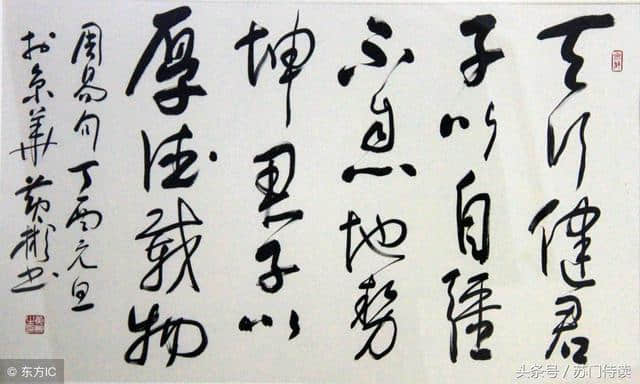 天行健君
子以自疆
不息地势
坤君子以
厚德载物
周易句丁酉元旦
於京華黄彬书
© 东方IC
头条号 / 苏门侍读